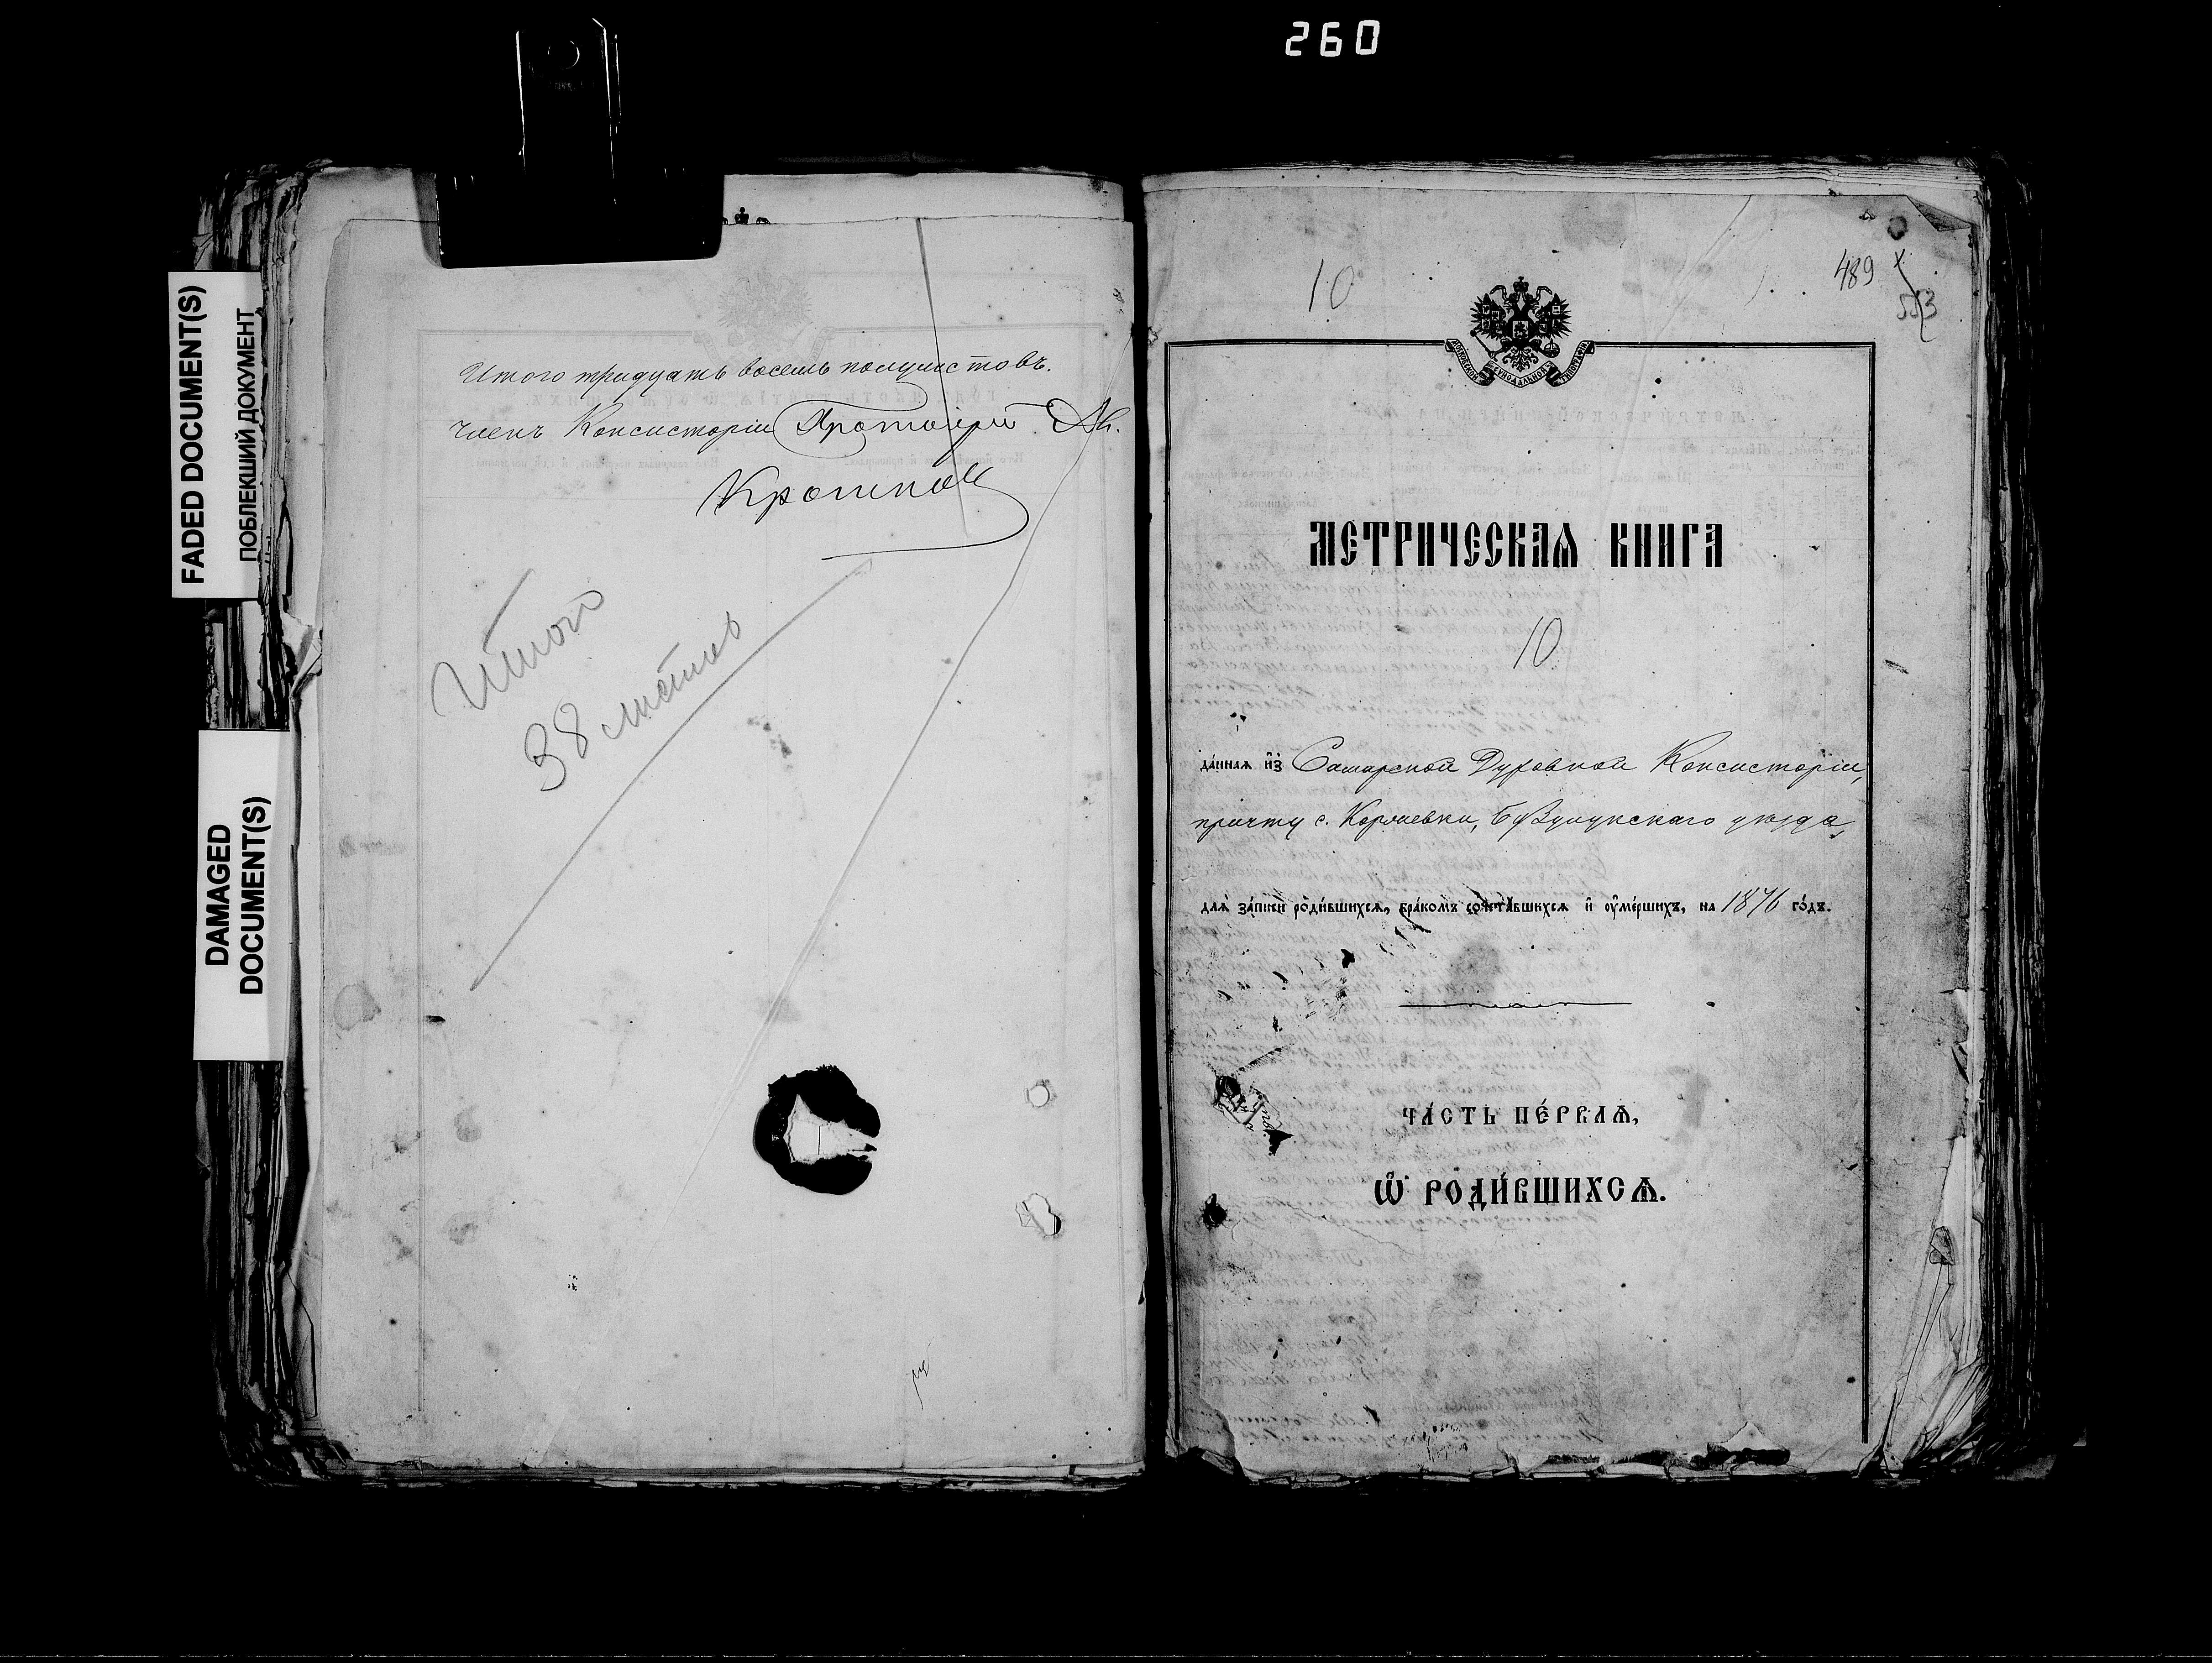 260
FADED DOCUMENT(S)
ПОБЛЕКШИЙ ДОКУМЕНТ
DAMAGED
DOCUMENT(S)
Итого тридцать восемь полулистовъ.
Членъ Консисторіи Протоіерей
Итого
38 листов
10
489
553
МОСКОВСКОЙ СУНОДАЛЬНОЙ ТИПОГРАФІИ
МЕТРИЧЕСКАѦ КНИГА
10
да́ннаѧ и҆з̾ Самарской Духовной Консисторіи,
причту с. Корнеевки, Бузулукскаго уѣзда,
длѧ̀ за́писи роди́вшихсѧ, бра́комъ сочета́вшихсѧ и҆ ᲂу҆ме́ршихъ, на 1876 го́дъ.
ЧА́СТЬ ПЕ́РВАѦ,
Ѽ РОДИ́ВШИХСѦ.